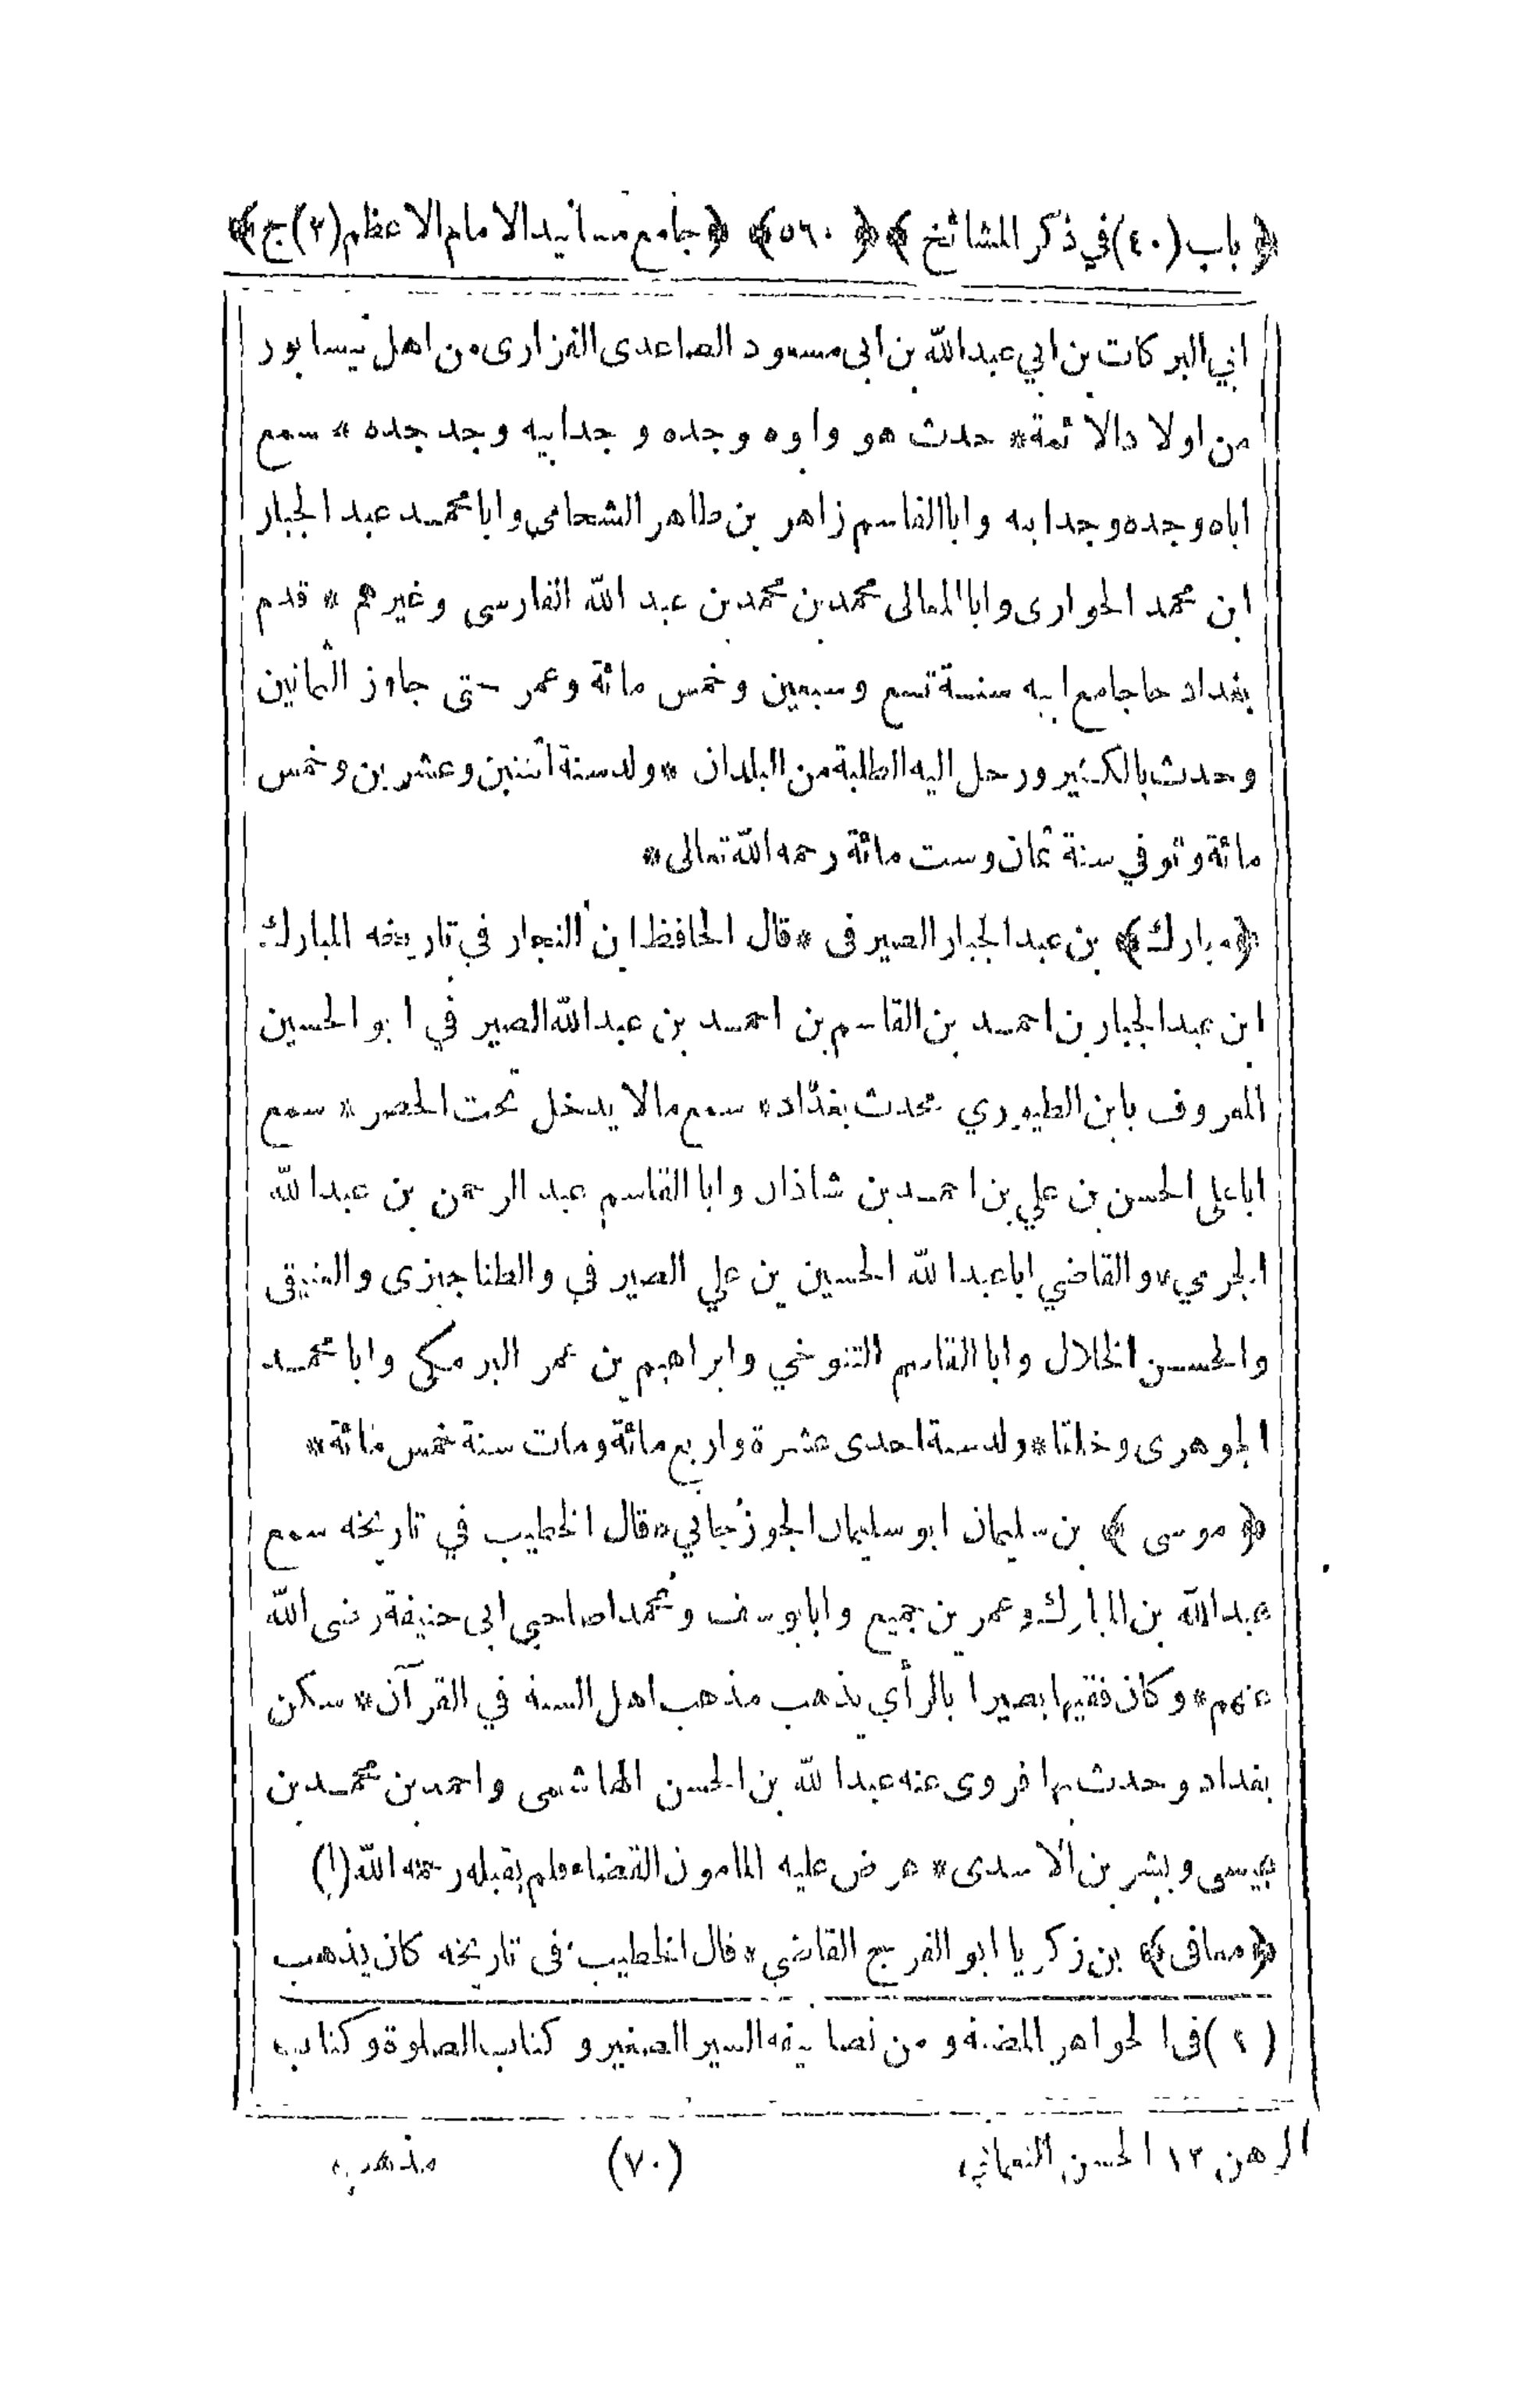 ﴿ باب (٤٠) في ذكر المشائخ ﴾ ﴿ ٥٦٠ ﴾ ﴿ جامع مسانيد الامام الاعظم (٢) ج ﴾
ابي البركات بن ابي عبدالله بن ابى مسعود الصاعدى الفزارى من اهل نيسابور
من اولاد الائمة * حدث هو وابوه وجده وجد ابيه وجد جده * سمع
اباه وجده وجد ابيه وابا القاسم زاهر بن طاهر الشحامى وابا محمد عبد الجبار
ابن محمد الحوارى وابا المعالى محمد بن محمد بن عبد الله الفارسى وغيرهم * قدم
بغداد حاجا مع ابيه سنة تسع وسبعين وخمس مائة وعمر حتى جاوز الثمانين
وحدث بالكثير ورحل اليه الطلبة من البلدان * ولد سنة اثنين وعشرين وخمس
مائة وتوفي سنة ثمان وست مائة رحمه الله تعالى *
﴿ مبارك ﴾ بن عبد الجبار الصير فى * قال الحافظ ابن النجار في تاريخه المبارك
ابن عبد الجبار بن احمد بن القاسم بن احمد بن عبدالله الصير في ابو الحسين
المعروف بابن الطيوري محدث بغداد * سمع مالا يدخل تحت الحصر * سمع
ابا على الحسن بن علي بن احمد بن شاذان وابا القاسم عبد الرحمن بن عبدالله
الجرمي * والقاضي ابا عبدالله الحسين بن علي الصير في والطناجيزى والعتيقى
والحسن الخلال وابا القاسم التنوخي وابراهيم بن عمر البرمكى وابا محمد
الجوهرى وخلقا * ولد سنة احدى عشرة واربع مائة ومات سنة خمس مائة *
﴿ موسى ﴾ بن سليمان ابو سليمان الجوزجاني * قال الخطيب في تاريخه سمع
عبدالله بن المبارك وعمر بن جميع وابا يوسف ومحمدا صاحبي ابى حنيفة رضى الله
عنهم * وكان فقيها بصيرا بالرأي يذهب مذهب اهل السنة في القرآن * سكن
بغداد وحدث بها فروى عنه عبدالله بن الحسن الهاشمى واحمد بن محمد بن
عيسى وبشر بن الاسدى * عرض عليه المامون القضاء فلم يقبله رحمه الله (١)
﴿ معافى ﴾ بن زكريا ابو الفرج القاضي * قال الخطيب فى تاريخه كان يذهب
(١) فى الجواهر المضية ومن تصانيفه السير الصغير وكتاب الصلوة وكتاب
الرهن ١٢ الحسن النعمانى (٧٠) مذهب